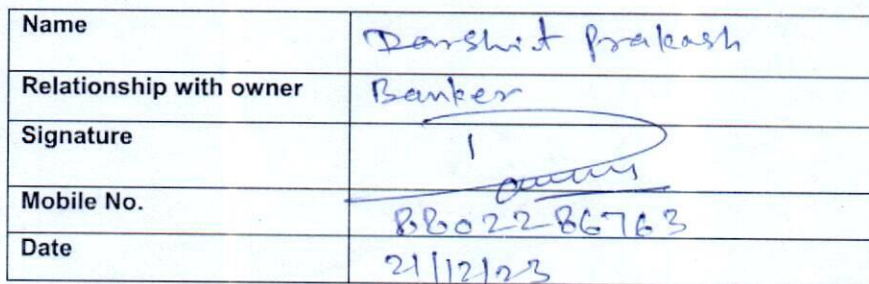 Name Darshit Prakash
Relationship with owner Banker
Signature
Mobile No. 8802286763
Date 21/12/23